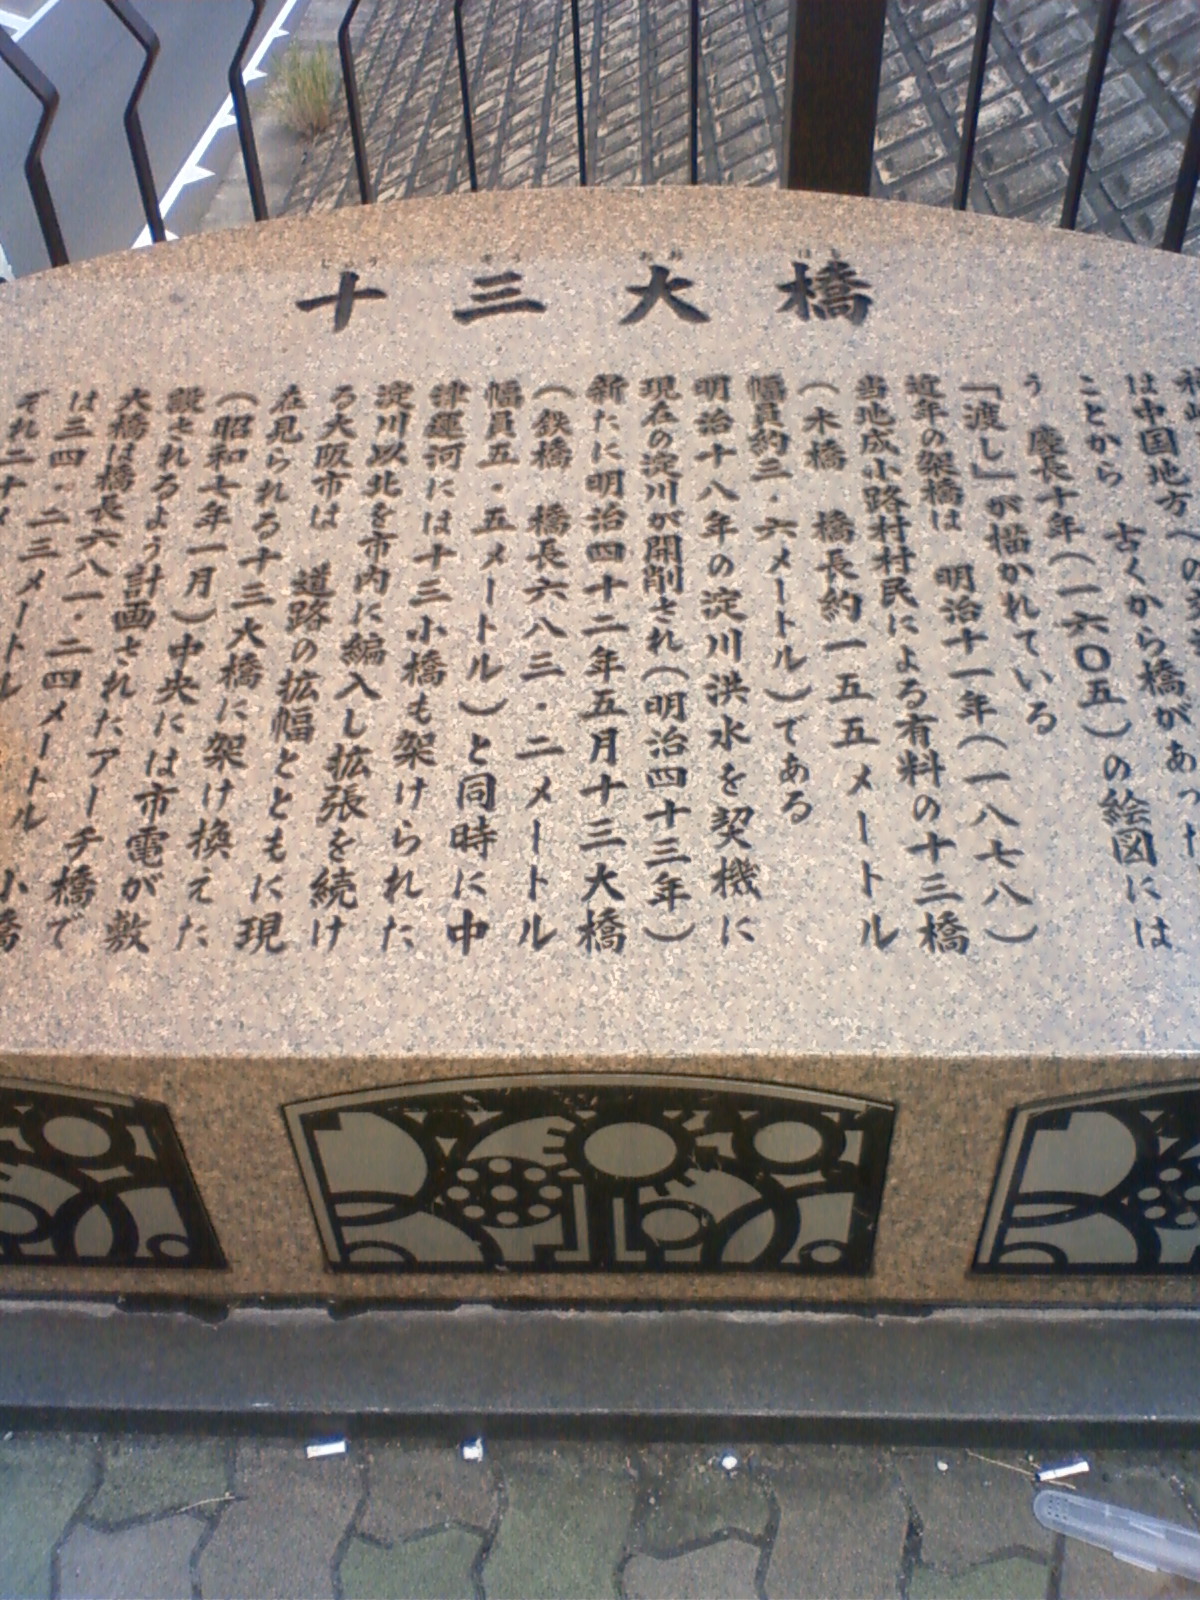 十三大橋
じゅうそうおおはし
は中国地方への
ことから 古くから橋があった
う 慶長十年(一六〇五)の絵図には
「渡し」が描かれている
近年の架橋は 明治十一年(一八七八)
当地成小路村村民による有料の十三橋
(木橋 橋長約一五五メートル
幅員約三・六メートル)である
明治十八年の淀川洪水を契機に
現在の淀川が開削され(明治四十三年)
新たに明治四十二年五月十三大橋
(鉄橋 橋長六八三・二メートル
幅員五・五メートル)と同時に中
津運河には十三小橋も架けられた
淀川以北を市内に編入し拡張を続け
る大阪市は 道路の拡幅とともに現
在見られる十三大橋に架け換えた
(昭和七年一月)中央には市電が敷
設されるよう計画されたアーチ橋で
大橋は橋長六八一・二四メートル
は三四・二三メートル 小橋
ぞれ二十メ